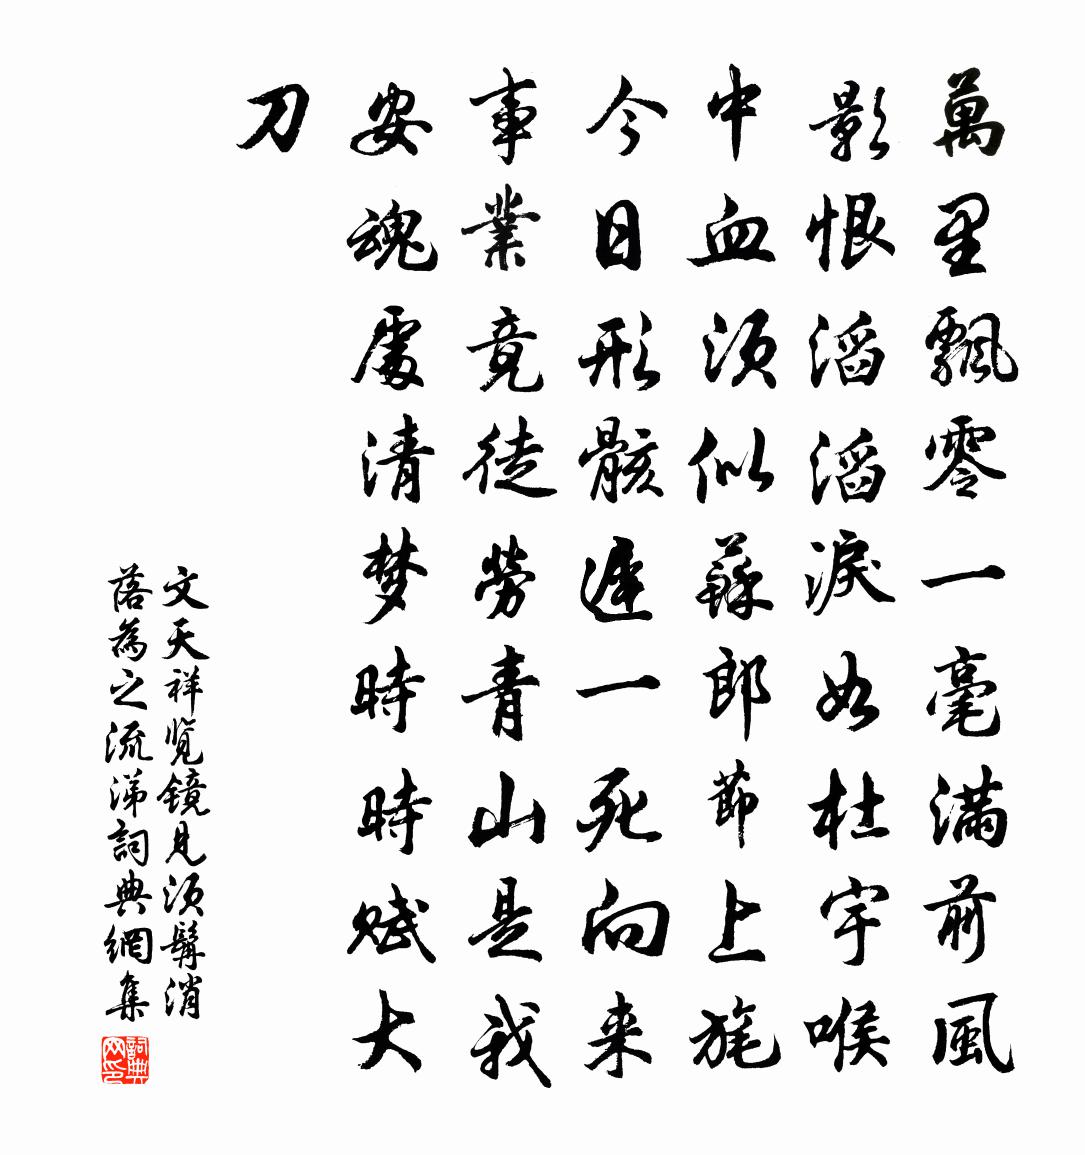 萬里飄零一毫滿前風
影恨滔滔淚如杜宇喉
中血须似蘇郎節上旄
今日形骸遲一死向来
事業竟徒勞青山是我
安魂處清梦時時赋大
刀
文天祥览鏡見须髯消
落為之流涕詞典網集
詞典网印